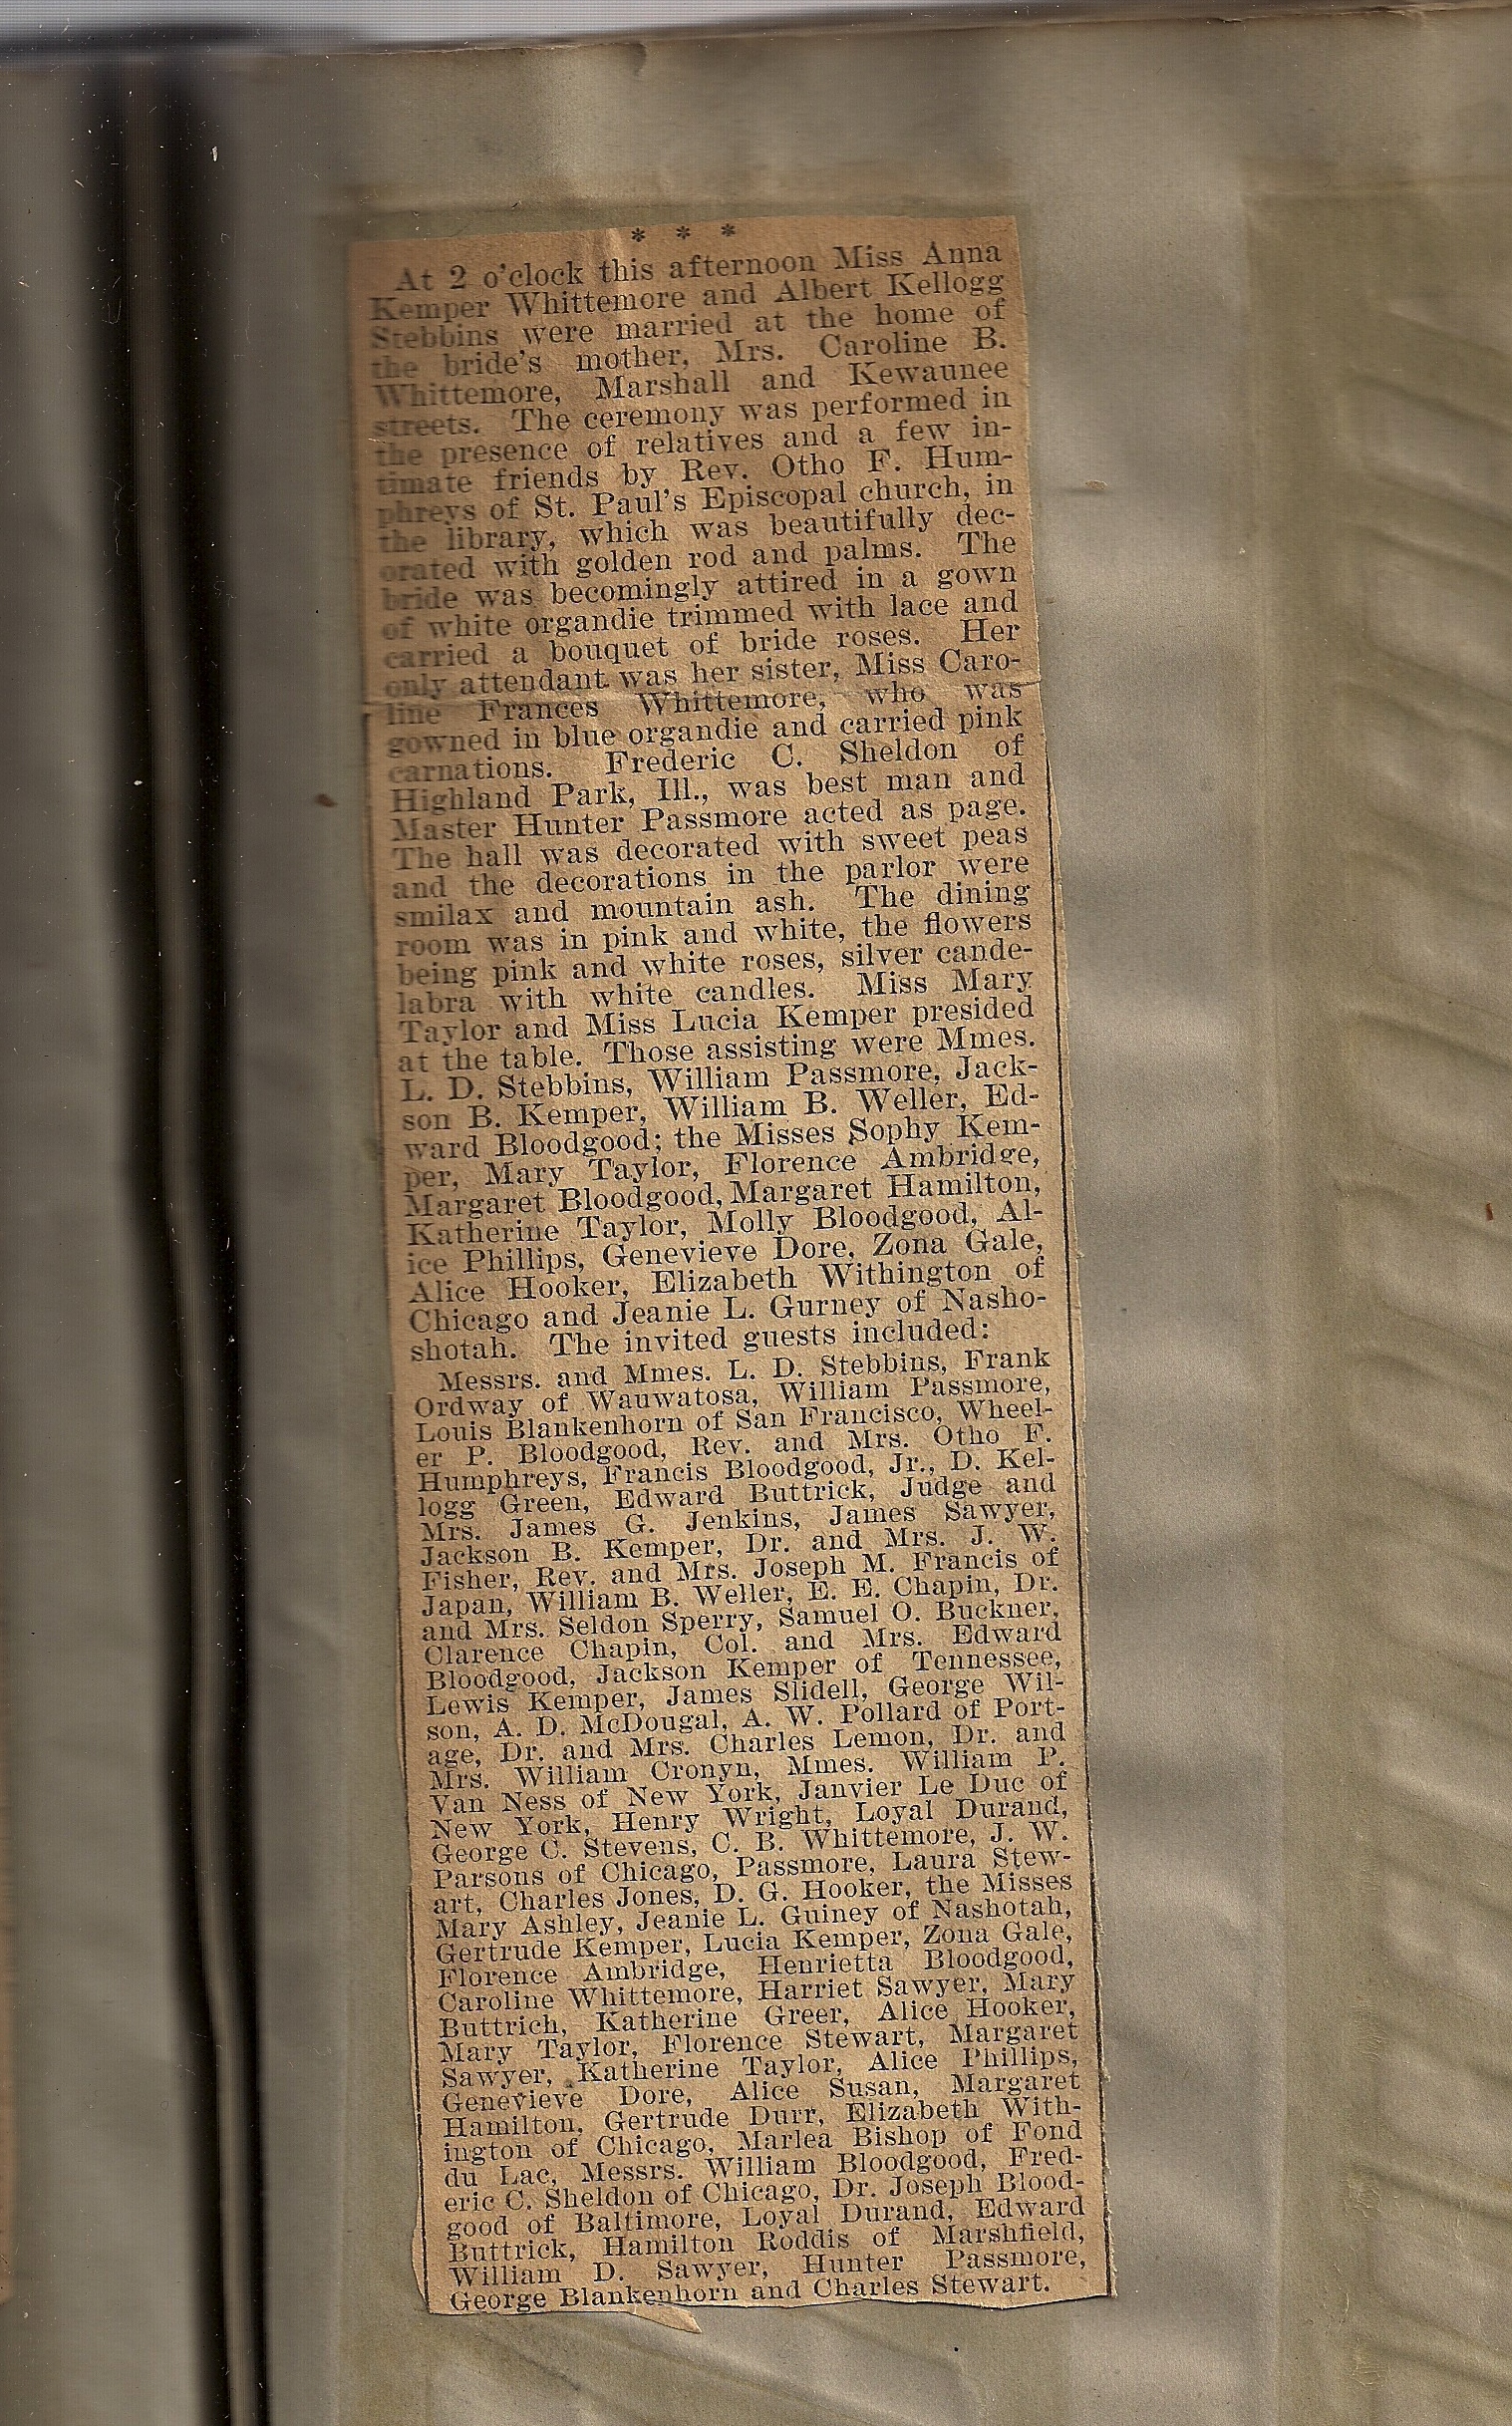 * * *
At 2 o'clock this afternoon Miss Anna
Kemper Whittemore and Albert Kellogg
Stebbins were married at the home of
the bride's mother, Mrs. Caroline B.
Whittemore, Marshall and Kewaunee
streets. The ceremony was performed in
the presence of relatives and a few in-
timate friends by Rev. Otho F. Hum-
phreys of St. Paul's Episcopal church, in
the library, which was beautifully dec-
orated with golden rod and palms. The
bride was becomingly attired in a gown
of white organdie trimmed with lace and
carried a bouquet of bride roses. Her
only attendant was her sister, Miss Caro-
line Frances Whittemore, who was
gowned in blue organdie and carried pink
carnations. Frederic C. Sheldon of
Highland Park, Ill., was best man and
Master Hunter Passmore acted as page.
The hall was decorated with sweet peas
and the decorations in the parlor were
smilax and mountain ash. The dining
room was in pink and white, the flowers
being pink and white roses, silver cande-
labra with white candles. Miss Mary
Taylor and Miss Lucia Kemper presided
at the table. Those assisting were Mmes.
L. D. Stebbins, William Passmore, Jack-
son B. Kemper, William B. Weller, Ed-
ward Bloodgood; the Misses Sophy Kem-
per, Mary Taylor, Florence Ambridge,
Margaret Bloodgood, Margaret Hamilton,
Katherine Taylor, Molly Bloodgood, Al-
ice Phillips, Genevieve Dore, Zona Gale,
Alice Hooker, Elizabeth Withington of
Chicago and Jeanie L. Gurney of Nasho-
shotah. The invited guests included:
Messrs. and Mmes. L. D. Stebbins, Frank
Ordway of Wauwatosa, William Passmore,
Louis Blankenhorn of San Francisco, Wheel-
er P. Bloodgood, Rev. and Mrs. Otho F.
Humphreys, Francis Bloodgood, Jr., D. Kel-
logg Green, Edward Buttrick, Judge and
Mrs. James G. Jenkins, James Sawyer,
Jackson B. Kemper, Dr. and Mrs. J. W.
Fisher, Rev. and Mrs. Joseph M. Francis of
Japan, William B. Weller, E. E. Chapin, Dr.
and Mrs. Seldon Sperry, Samuel O. Buckner,
Clarence Chapin, Col. and Mrs. Edward
Bloodgood, Jackson Kemper of Tennessee,
Lewis Kemper, James Slidell, George Wil-
son, A. D. McDougal, A. W. Pollard of Port-
age, Dr. and Mrs. Charles Lemon, Dr. and
Mrs. William Cronyn, Mmes. William P.
Van Ness of New York, Janvier Le Duc of
New York, Henry Wright, Loyal Durand,
George C. Stevens, C. B. Whittemore, J. W.
Parsons of Chicago, Passmore, Laura Stew-
art, Charles Jones, D. G. Hooker, the Misses
Mary Ashley, Jeanie L. Guiney of Nashotah,
Gertrude Kemper, Lucia Kemper, Zona Gale,
Florence Ambridge, Henrietta Bloodgood,
Caroline Whittemore, Harriet Sawyer, Mary
Buttrich, Katherine Greer, Alice Hooker,
Mary Taylor, Florence Stewart, Margaret
Sawyer, Katherine Taylor, Alice Phillips,
Genevieve Dore, Alice Susan, Margaret
Hamilton, Gertrude Durr, Elizabeth With-
ington of Chicago, Marlea Bishop of Fond
du Lac, Messrs. William Bloodgood, Fred-
eric C. Sheldon of Chicago, Dr. Joseph Blood-
good of Baltimore, Loyal Durand, Edward
Buttrick, Hamilton Roddis of Marshfield,
William D. Sawyer, Hunter Passmore,
George Blankenhorn and Charles Stewart.